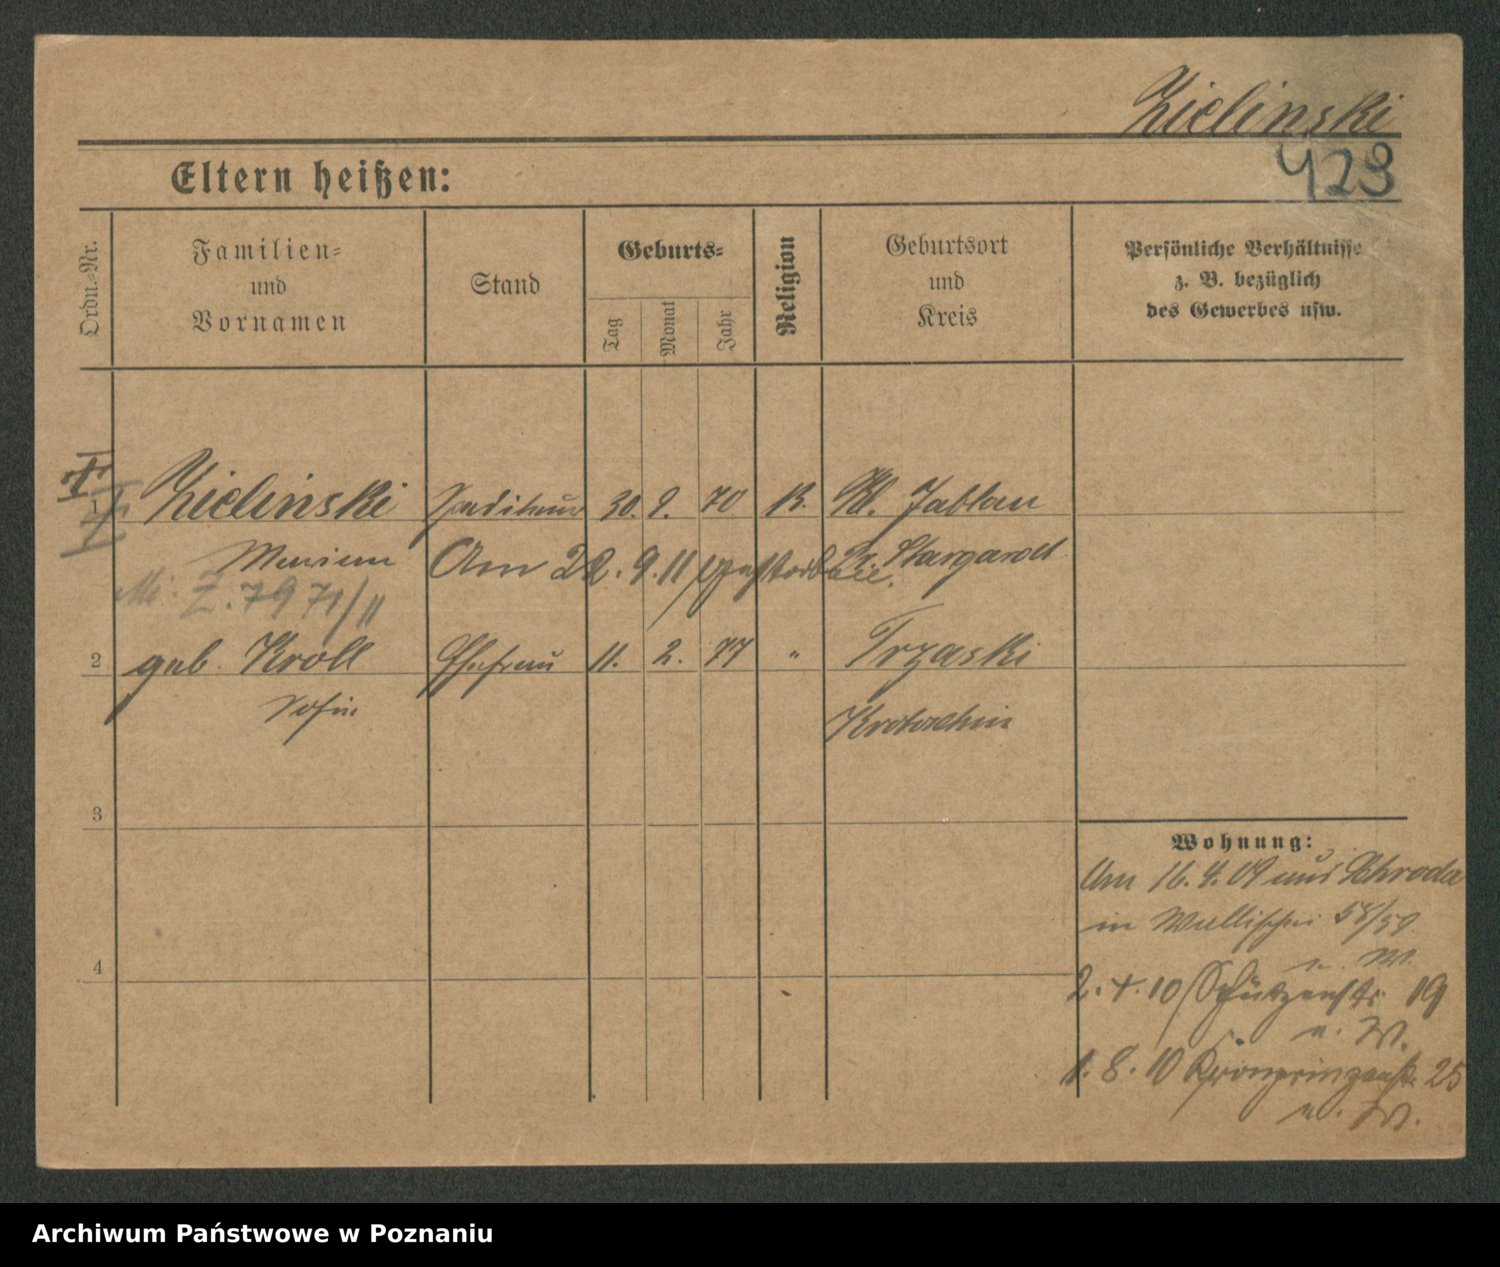 Zielinski
423
Eltern heißen:
Ordn.-Nr.
Familien-
und
Vornamen
Stand
Geburts-
Tag
Monat
Jahr
Religion
Geburtsort
und
Kreis
Persönliche Verhältnisse
z. B. bezüglich
des Gewerbes usw.
1 Zielinski Spediteur 30. 9. 70 K. Kl. Jablau
Marian Am 22. 9. 11 gestorben. Pr. Stargardt
Z. 7971/11
2 geb. Kroll Ehefrau 11. 2. 77 " Trzaski
Sofie Krotoschin
3
4
Wohnung:
Am 16. 4. 09 aus Schroda
in Wallischei 58/59
u. W.
2. 4. 10 Schützenstr. 19
u. W.
1. 8. 10 Kronprinzenstr. 25
u. W.
Archiwum Państwowe w Poznaniu